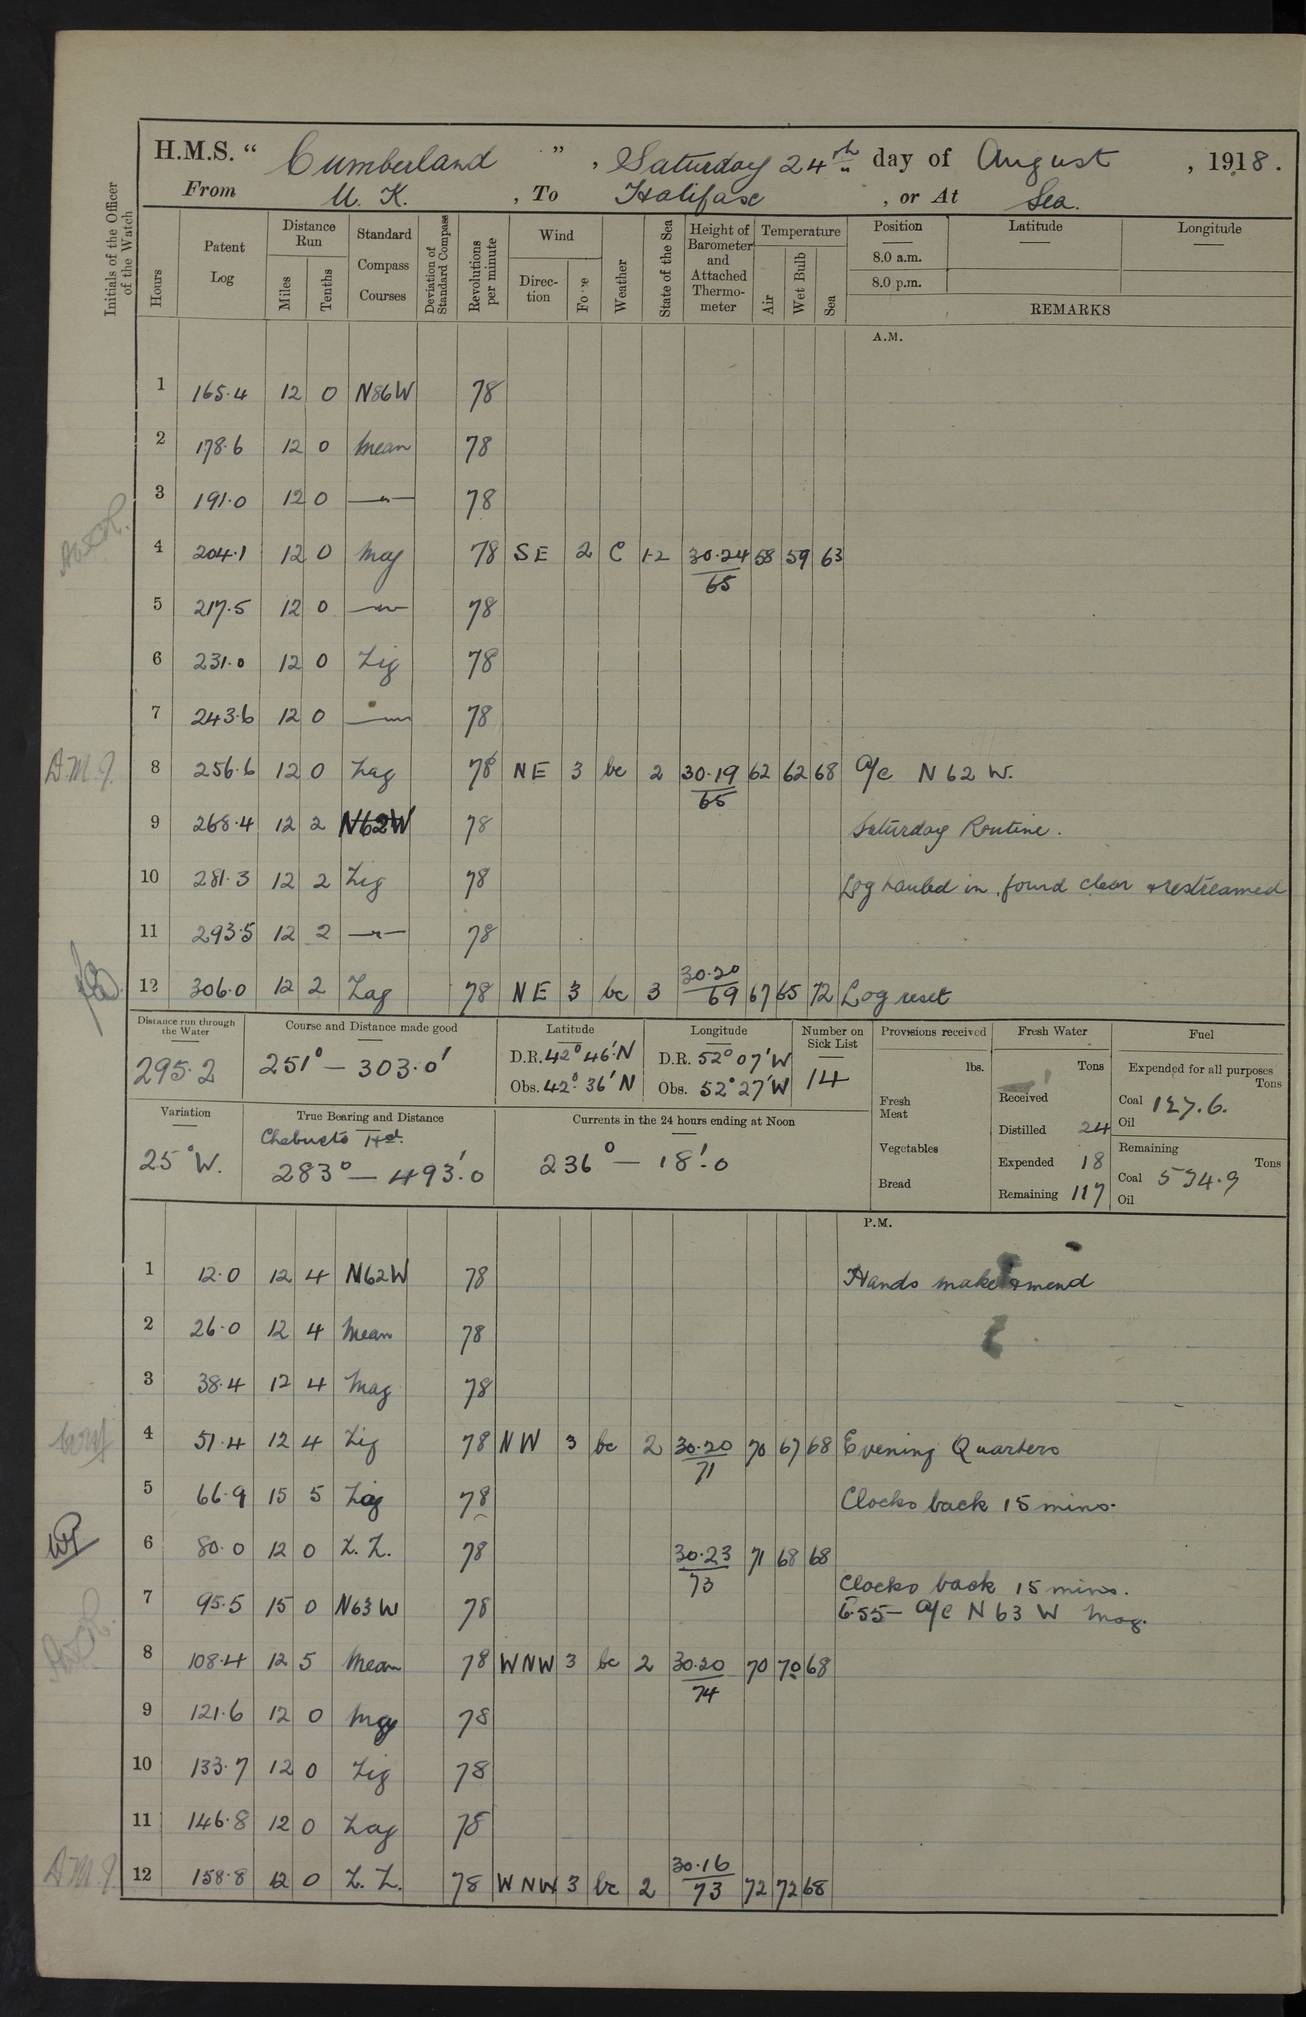 H.M.S. “ Cumberland ” , Saturday 24th day of August , 1918.
From U. K. , To Halifax , or At Sea.
Initials of the Officer of the Watch
Hours Patent Log Distance Run Miles Tenths Standard Compass Courses Deviation of Standard Compass Revolutions per minute Wind Direc-tion Force Weather State of the Sea Height of Barometer and Attached Thermo-meter Temperature Air Wet Bulb Sea Position Latitude Longitude
8.0 a.m.
8.0 p.m.
REMARKS
A.M.
1 165.4 12 0 N86W 78
2 178.6 12 0 Mean 78
3 191.0 12 0 —"— 78
4 204.1 12 0 Mag 78 SE 2 C 1-2 30.24 58 59 63
65
5 217.5 12 0 —"— 78
6 231.0 12 0 Zig 78
7 243.6 12 0 —"— 78
A.M.J. 8 256.6 12 0 Zag 78 NE 3 bc 2 30.19 62 62 68 a/c N 62 W.
65
9 268.4 12 2 N62W 78 Saturday Routine.
10 281.3 12 2 Zig 78 Log hauled in, found clear & restreamed
11 293.5 12 2 —"— 78
12 306.0 12 2 Zag 78 NE 3 bc 3 30.20 67 65 72 Log reset
69
Distance run through the Water 295.2
Course and Distance made good 251° — 303.0'
Latitude D.R. 42° 46' N Obs. 42° 36' N
Longitude D.R. 52° 07' W Obs. 52° 27' W
Number on Sick List 14
Provisions received lbs.
Fresh Meat
Vegetables
Bread
Fresh Water Tons
Received
Distilled 24
Expended 18
Remaining 117
Fuel
Expended for all purposes Tons
Coal 127.6.
Oil
Remaining Tons
Coal 534.9
Oil
Variation 25° W.
True Bearing and Distance
Chebucto Hd.
283° — 493'.0
Currents in the 24 hours ending at Noon
236° — 18'.0
P.M.
1 12.0 12 4 N62W 78 Hands make & mend
2 26.0 12 4 Mean 78
3 38.4 12 4 Mag 78
4 51.4 12 4 Zig 78 NW 3 bc 2 30.20 70 67 68 Evening Quarters
71
5 66.9 15 5 Zag 78 Clocks back 15 mins.
6 80.0 12 0 Z. Z. 78 30.23 71 68 68
73
Clocks back 15 mins.
7 95.5 15 0 N63W 78 6.55 – a/c N 63 W Mag.
8 108.4 12 5 Mean 78 WNW 3 bc 2 30.20 70 70 68
74
9 121.6 12 0 Mag 78
10 133.7 12 0 Zig 78
11 146.8 12 0 Zag 78
A.M.J. 12 158.8 12 0 Z. Z. 78 WNW 3 bc 2 30.16 72 72 68
73